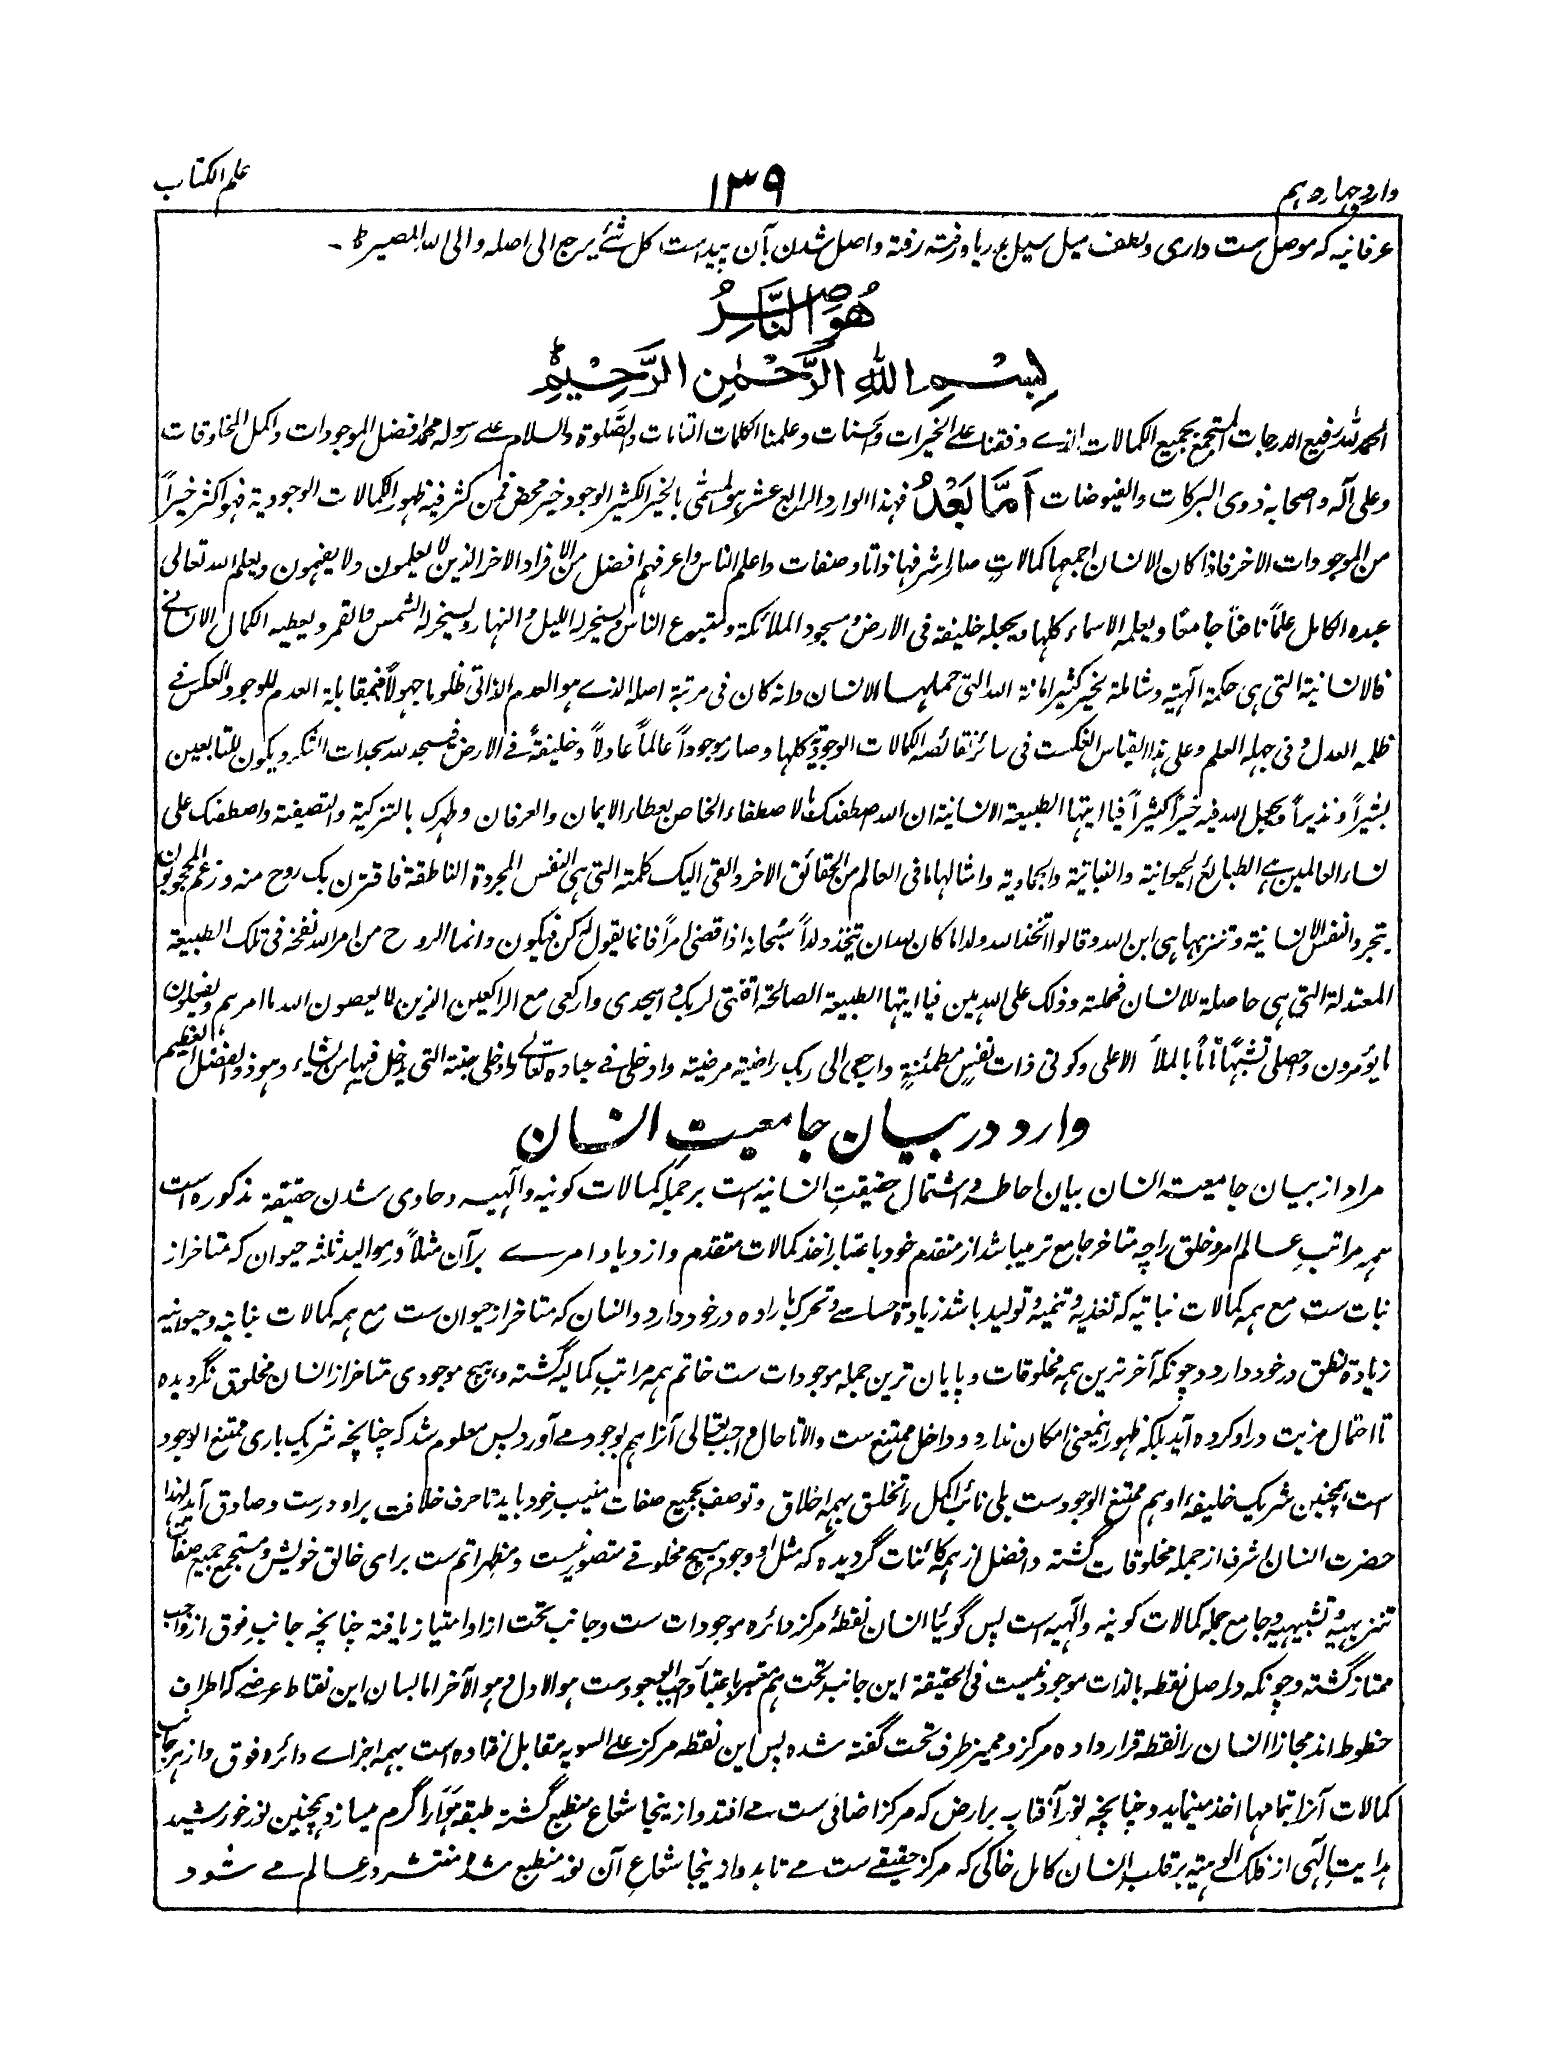 وارد چہاردہم
۱۳۹
علم الکتاب
عرفانیہ کہ موصل ست داری و بلطف میل سیل بدریا و رفتہ رفتہ واصل شدن بآن پیداست کل شئے یرجع الی اصلہ والی اللہ المصیر ط ـ
هُوَ النَّاصِرُ
بِسْمِ اللهِ الرَّحْمٰنِ الرَّحِيْمِ ط
الحمد للہ رفیع الدرجات المستجمع بجمیع الکمالات الذے وفقنا علے الخیرات والحسنات وعلمنا الکلمات التامات والصَّلٰوۃ والسلام علے رسولہ محمد افضل الموجودات واکمل المخلوقات
وعلی آلہ واصحابہ ذوی البرکات والفیوضات اَمَّا بَعْدُ فہذا الوارد الرابع عشر ہو المسمّٰی بالخیر الکثیر الوجود خیر محض فمن کثر فیہ ظہور الکمالات الوجودیۃ فہو اکثر خیراً
من الموجودات الاخر فاذا کان الانسان اجمعہا کمالاتٍ صار اشرفہا ذاتا وصفات واعلم الناس واعرفہم افضل من الافراد الاخر الذین لا یعلمون ولا یفہمون ویعلم اللہ تعالی
عبدہ الکامل علماً خاصاً جامعًا ویعلمہ الاسماء کلہا ویجعلہ خلیفۃ فی الارض ومسجود الملائکۃ ومتبوع الناس ویسخر لہ اللیل والنہار ویسخر لہ الشمس والقمر ویعطیہ الکمال الانسانے
فالانسانیۃ التی ہی حکمۃ الٰہیۃ وشاملۃ بخیر کثیر امانۃ اللہ التی حملہا الانسان وانہ کان فی مرتبۃ اصلہ الذے ہو العدم الذاتی ظلوما جہولاً فبمقابلۃ العدم للوجود انعکس فے
ظلمہ العدل وفی جہلہ العلم وعلی ہذا القیاس انعکست فی سائر نقائصہ الکمالات الوجودیۃ کلہا وصار موجوداً عالماً عادلاً وخلیفۃً فے الارض فیسجد للہ سجدات الشکر ویکون للتابعین
بشیراً ونذیراً ویجعل اللہ فیہ خیراً کثیراً فیا ایتہا الطبیعۃ الانسانیۃ ان اللہ اصطفٰک بالاصطفاء الخاص بعطاء الایمان والعرفان وطہرک بالتزکیۃ والتصفیۃ واصطفٰک علی
نساء العالمین ہے الطبائع الحیوانیۃ والنباتیۃ والجمادیۃ وامثالہا مافی العالم من الحقائق الاخر والقی الیک کلمتہ التی ہی النفس المجردۃ الناطقۃ فاقترن بک روح منہ وزعم المحجوبون
بتجرد النفس الانسانیۃ وتنزیہہا ہی ابن اللہ وقالوا اتخذ اللہ ولدا ما کان للہ ان یتخذ ولداً سُبحانہ اذا قضی امراً فانما یقول لہ کن فیکون وانما الروح من امر اللہ نفخہ فی تلک الطبیعۃ
المعتدلۃ التی ہی حاصلۃ للانسان فحملتہ وذلک علی اللہ ہین فیا ایتہا الطبیعۃ الصالحۃ اقنتی لربک واسجدی وارکعی مع الراکعین الذین لا یعصون اللہ ما امرہم ویفعلون
ما یؤمرون وحصلی تشبّہاً تامًّا بالملأ الاعلٰی وکونی ذات نفسٍ مطمئنۃٍ وارجعی الی ربک راضیۃ مرضیۃ وادخلی فے عبادہ تعالے وادخلی جنتہ التی یدخل فیہا من یشاء وہو ذو الفضل العظیم
وارد در بیان جامعیتِ انسان
مراد از بیان جامعیت انسان بیان احاطہ و اشتمال حقیقتِ انسانیہ است بر جملۂ کمالات کونیہ و الٰہیہ و حاوی شدن حقیقۃ مذکورہ است
ہمہ مراتبِ عالم امر و خلق را چہ متاخر جامع تر میباشد از متقدم خود باعتبار اخذ کمالات متقدم و ازدیاد امرے برآن مثلاً در موالید ثلثہ حیوان کہ متاخر از
نبات ست مع ہمہ کمالات نباتیہ کہ تغذیہ و تنمیہ و تولید باشد زیادۃ حساسے و تحرک بارادہ در خود دارد و انسان کہ متاخر از حیوان ست مع ہمہ کمالات نباتیہ و حیوانیہ
زیادۃ نطق در خود دارد و چونکہ آخر ترین ہمہ مخلوقات و پایان ترین جملہ موجودات ست خاتم ہمہ مراتبِ کمالیہ گشتہ و ہیچ موجودی متاخر از انسان مخلوق نگردیدہ
تا احتمال مزیت در او کردہ آید بلکہ ظہور اینمعنی امکان ندارد و داخل ممتنع ست و الا تا حال واجب تعالی آنرا ہم بوجود مے آورد پس معلوم شد کہ چنانچہ شریک باری ممتنع الوجود
ست ہمچنین شریک خلیفۂ او ہم ممتنع الوجود ست بلی نائب اکمل را تخلق بہمہ اخلاق و توصف بجمیع صفات منیب خود باید تا حرف خلافت بر او درست و صادق آید لہذا
حضرت انسان اشرف از جملہ مخلوقات گشتہ و افضل از ہمہ کائنات گردیدہ کہ مثل او وجود ہیچ مخلوقے متصور نیست و مظہر اتم ست برای خالق خویش و مستجمع جمیع صفات
تنزیہیہ و تشبیہیہ و جامع جملہ کمالات کونیہ و الٰہیہ است پس گوئیا انسان نقطۂ مرکز دائرہ موجودات ست و جانب تحت از او امتیاز یافتہ چنانچہ جانبِ فوق از واجب
ممتاز گشتہ و چونکہ در اصل نقطہ بالذات موجود نیست فی الحقیقۃ این جانب تحت ہم معتبر باعتبار واجب الوجود ست ہو الاول و ہو الآخر اما بسان این نقاط عرضے کہ اطراف
خطوط اند مجازا انسان را نقطہ قرار دادہ مرکز و ممیز طرف تحت گفتہ شدہ پس این نقطہ مرکز علی السویہ مقابل افتادہ است بہمہ اجزاے دائرہ فوق و از ہر جانب
کمالات آنرا بتمامہا اخذ مینماید و چنانچہ نور آفتاب بر ارض کہ مرکز اضافی ست مے افتد و از ینجا شعاع منطبع گشتہ طبقہ ہوا را گرم میسازد ہمچنین نور خورشید
ہدایت الٰہی از فلک الوہیتہ بر قلب انسان کامل خاکی کہ مرکز حقیقے ست مے تابد و از ینجا شعاعِ آن نور منطبع شدہ منتشر در عالم مے شود